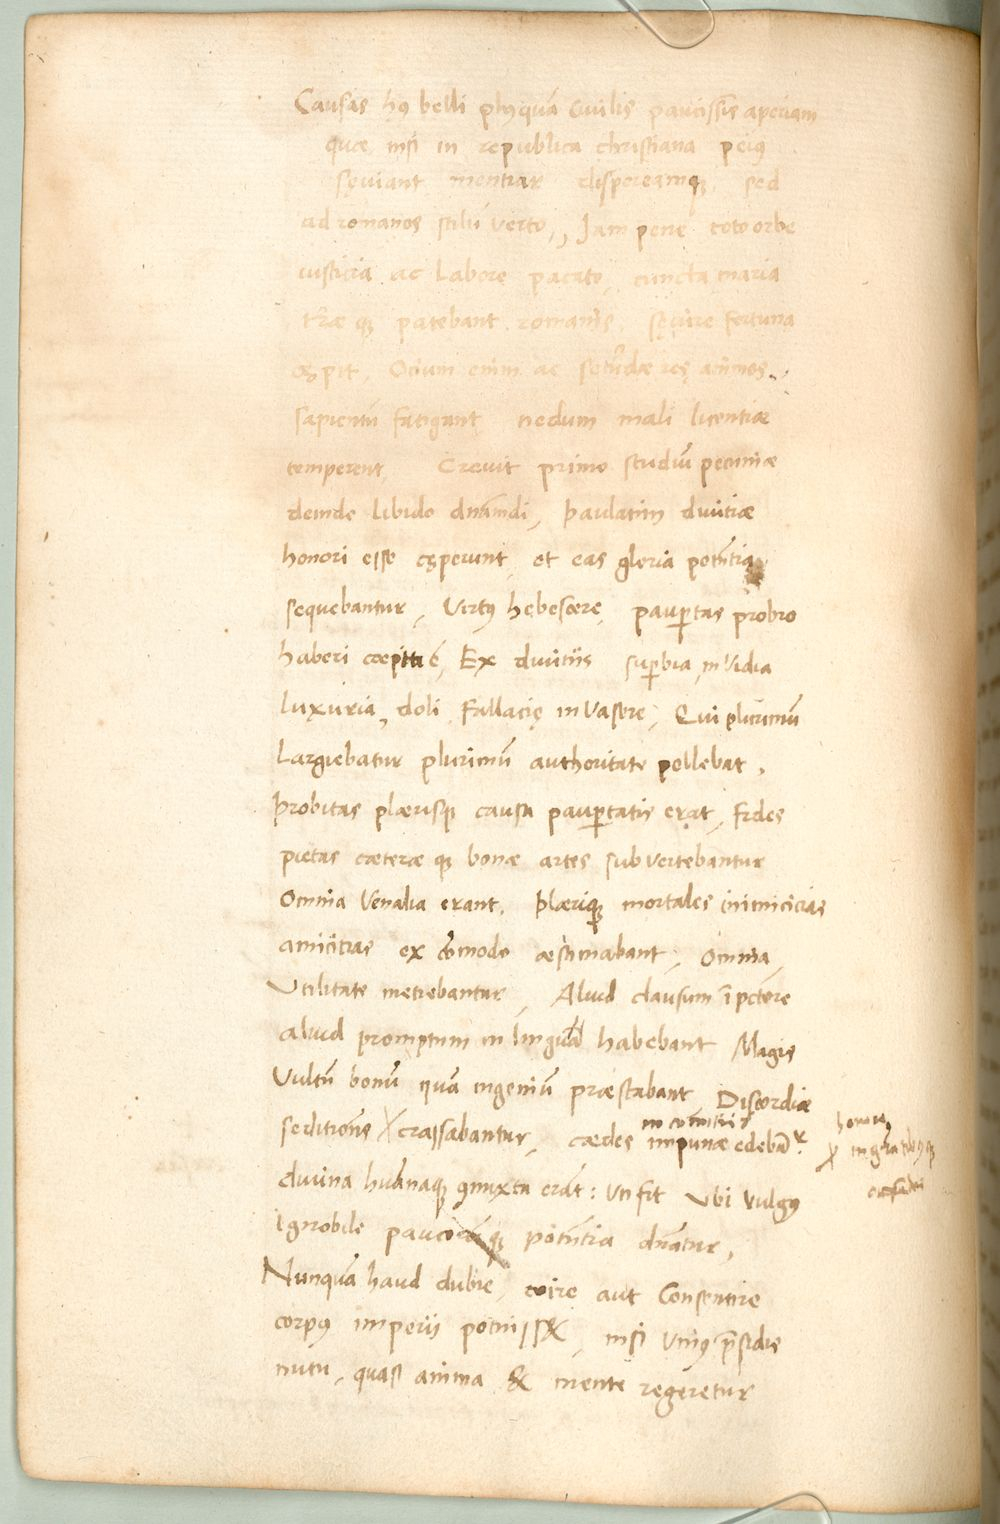 Causas hꝰ belli plusquā Civilis paucissĩs aperiam
quæ nisi in republica christiana peiꝰ
sęviant mentiar dispereamqꝫ sed
ad romanos stilũ verto, Jam pene toto orbe
iusticia ac labore pacato, cuncta maria
tr̃æ qꝫ patebant romanis, sęvire fortuna
cępit, Ocium enim ac secũdæ res animos
sapientũ fatigant nedum mali licentiæ
temperent, Crevit primo studiũ pecuniæ
deinde libido dnãndi, paulatim divitiæ
honori esse cęperunt, et eas gloria potñtia
sequebantur, Virtꝰ hebescere, paup̱tas probro
haberi cœpit, Ex divitiis sup̱bia, invidia
luxuria, doli, fallacię invasere, Qui plurimũ
largiebatur plurimũ authoritate pollebat,
probitas plærisqꝫ causa paup̱tatis erat, fides
pietas cæteræ qꝫ bonæ artes subvertebantur
Omnia venalia erant, plæriqꝫ mortales inimicicias
amicitias ex cõmodo æstimabant, Omnia,
Utilitate metiebantur, Aliud clausum ĩ pctore
aliud promptum in lingua habebant Magis
Vultũ bonũ quã ingeniũ præstabant Discordiæ
seditiones crassabantur, cædes impunæ edebãt
divina humanaqꝫ ꝯmixta erãt: Ut fit Ubi vulgꝰ
Ignobile pauco qꝫ potñtia dñatur,
Nunquã haud dubie, coire aut Consentire
corpꝰ imperii potuisse, nisi Uniꝰ p̃sidis
nutu, quasi anima & mente regeretur